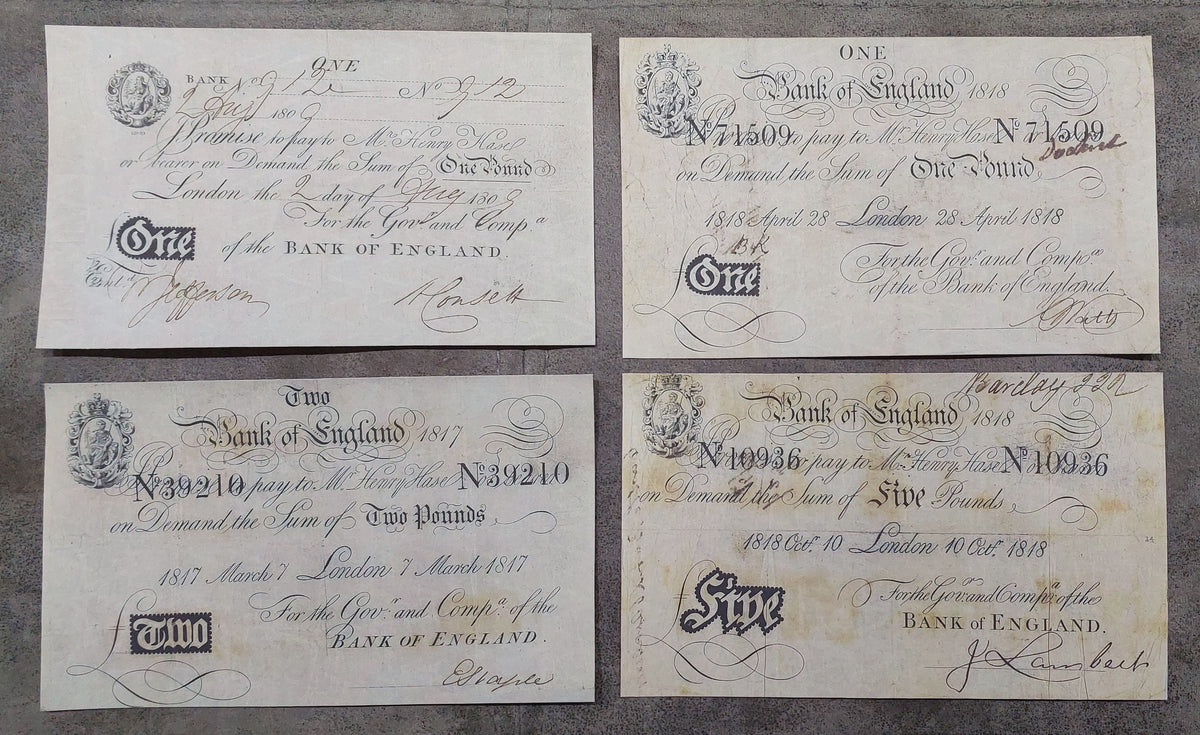 ONE
BANK No 912 No 912
2 Augt 180
I Promise to pay to Mr. Henry Hase
or bearer on Demand the Sum of One Pound
London the 2 day of 180
For the Govr. and Compa.
£One of the BANK OF ENGLAND.
W Jefferson H Consett
ONE
Bank of England 1818
No 71509 to pay to Mr. Henry Hase No 71509
on Demand the Sum of One Pound
1818 April 28 London 28 April 1818
BK
£One
For the Govr. and Compa.
of the Bank of England.
Two
Bank of England 1817
No 39210 pay to Mr. Henry Hase No 39210
on Demand the Sum of Two Pounds
1817 March 7 London 7 March 1817
For the Govr. and Compa. of the
£Two BANK OF ENGLAND.
Barclay
Bank of England 1818
No 10936 to pay to Mr. Henry Hase No 10936
on Demand the Sum of Five Pounds
1818 Octr. 10 London 10 Octr. 1818
For the Govr. and Compa. of the
£Five BANK OF ENGLAND.
J Lambert